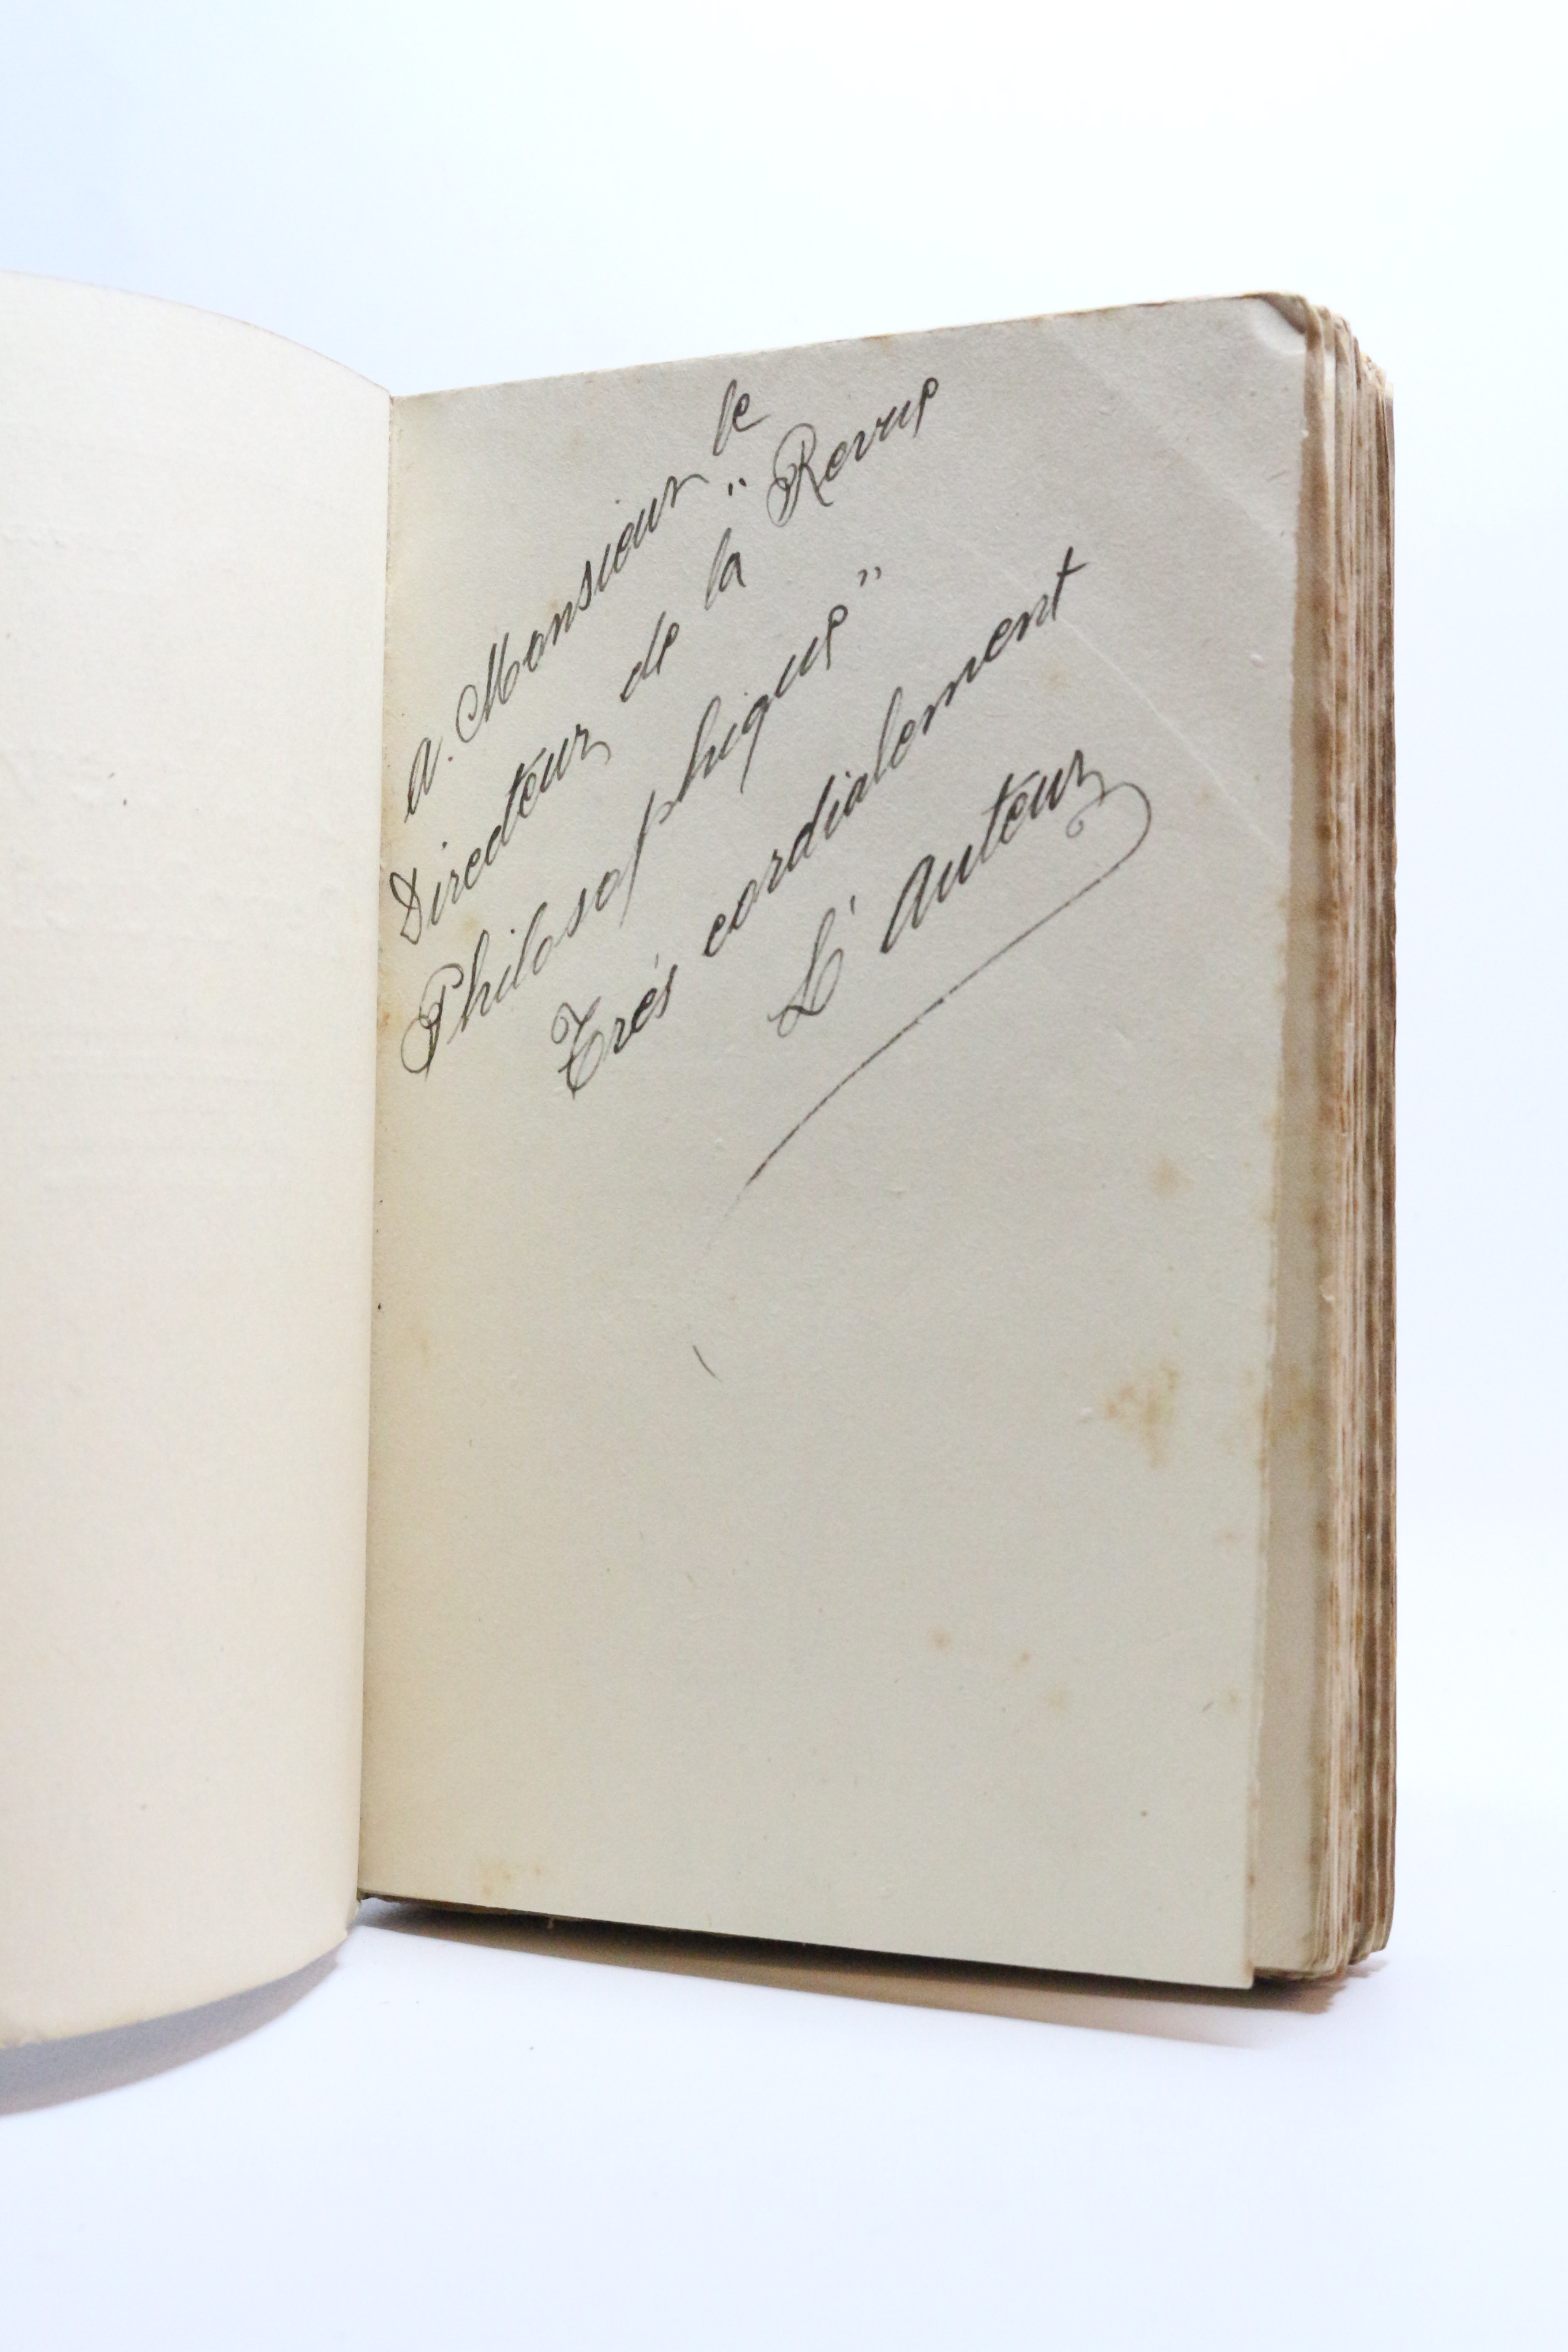 A. Monsieur le
Directeur de la "Revue
Philosophique"
Trés cordialement
L'Auteur